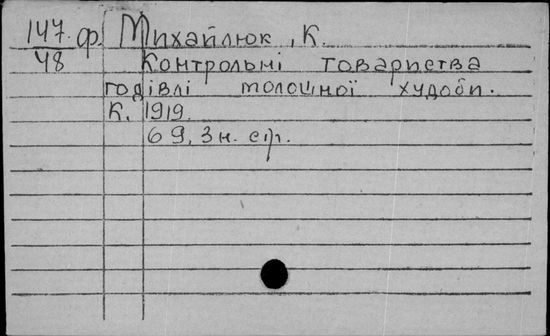 147 ф. Михайлюк, К.
48 Контрольні товариства
годівлі молошної худоби.
К. 1919.
69, 3 н. стр.